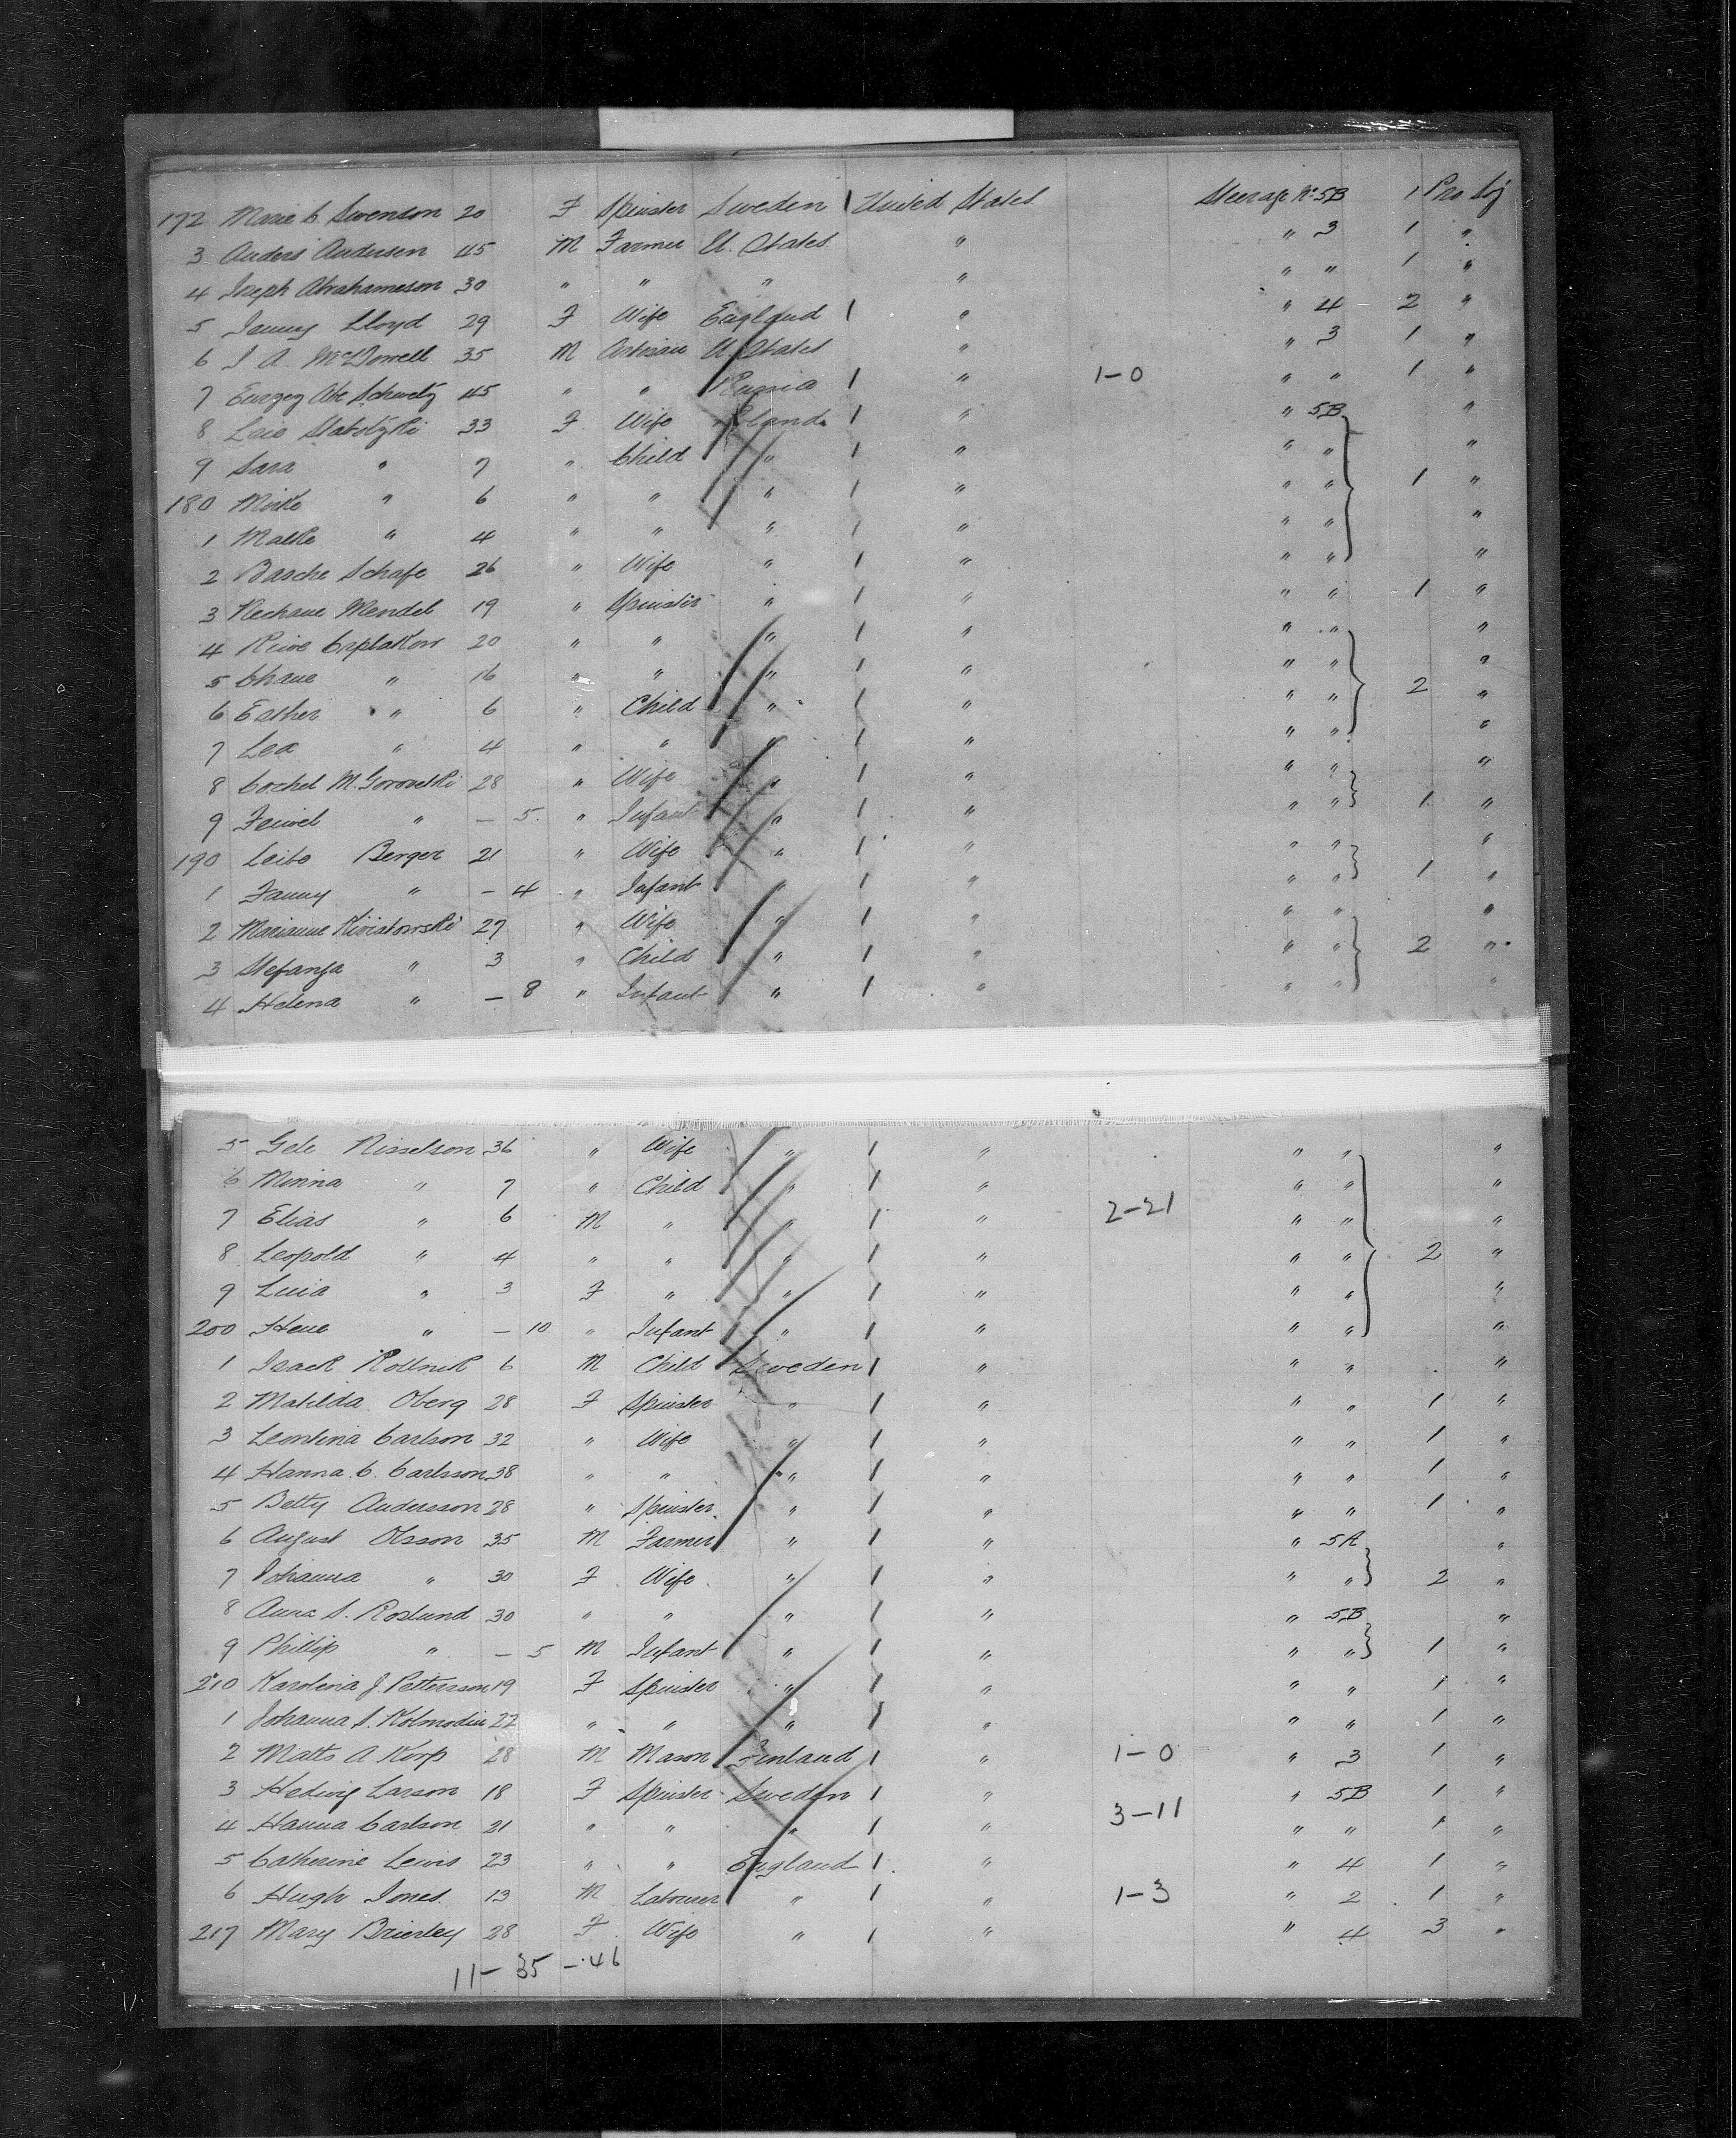 172 Marie C. Swenson 20 F Spinster Sweden 1 United States Steerage No 5B 1 Pro Soj
3 Anders Andersen 45 M Farmer U. States " " 3 1 "
4 Joseph Abrahameson 30 " " " " " " 1 "
5 Janny Lloyd 29 F Wife England 1 " " 4 2 "
6 J A. McDowell 35 M Artisan U States " " 3 1 "
7 Abe Schwetz 45 " " Russia 1 " 1-0 " " 1 "
8 Leie Slabotzki 33 F Wife 1 " " 5B "
9 Sara " 7 " Child " 1 " " " "
180 Mirke " 6 " " " 1 " " " 1 "
1 Malke " 4 " " " 1 " " " "
2 Basche Schafe 26 " Wife " 1 " " " "
3 Nechane Mendel 19 " Spinster " 1 " " " 1 "
4 Reive Caplakow 20 " " " 1 " " " "
5 Chane " 16 " " " 1 " " " "
6 Esther " 6 " Child " 1 " " " 2 "
7 Lea " 4 " " " 1 " " " "
8 M. Gorovetki 28 " Wife " 1 " " " "
9 Feiwel " — 5 " Infant " 1 " " " 1 "
190 Leibe Berger 21 " Wife " 1 " " " "
1 Fanny " — 4 " Infant " 1 " " " 1 "
2 Marianne Kwiatowski 27 " Wife " 1 " " " "
3 Stefanja " 3 " Child " 1 " " " 2 "
4 Helena " — 8 " Infant " 1 " " " "
5 Gele Nisselson 36 " Wife " 1 " " " "
6 Minna " 7 " Child " 1 " " " "
7 Elias " 6 M " " 1 " 2-21 " " "
8 Leopold " 4 " " " 1 " " " 2 "
9 " 3 F " " 1 " " " "
200 Hene " — 10 " Infant " 1 " " " "
1 Isack Kollnik 6 M Child Sweden 1 " " " "
2 Matilda Oberg 28 F Spinster " 1 " " " 1 "
3 Leontina Carlson 32 " Wife " 1 " " " 1 "
4 Hanna C. Carlsson 38 " " " 1 " " " 1 "
5 Betty Andersson 28 " Spinster " 1 " " " 1 "
6 August Olsson 35 M Farmer " 1 " " 5A "
7 Johanna " 30 F Wife " 1 " " " 2 "
8 Anna S. Roslund 30 " " " 1 " " 5B "
9 Phillip " — 5 M Infant " 1 " " " 1 "
210 Karolina J. Petterson 19 F Spinster " 1 " " " 1 "
1 Johanna S. Kolmodin 22 " " " 1 " " " 1 "
2 Matts A Korp 28 M Mason Finland 1 " 1-0 " 3 1 "
3 Hedwig Larson 18 F Spinster Sweden 1 " " 5B 1 "
4 Hanna Carlson 21 " " " 1 " 3-11 " " 1 "
5 Catherine Lewis 23 " " England 1 " " 4 1 "
6 Hugh Jones 13 M Labourer " 1 " 1-3 " 2 1 "
217 Mary Brierley 28 F Wife " 1 " " 4 3 "
11- 35 - 46